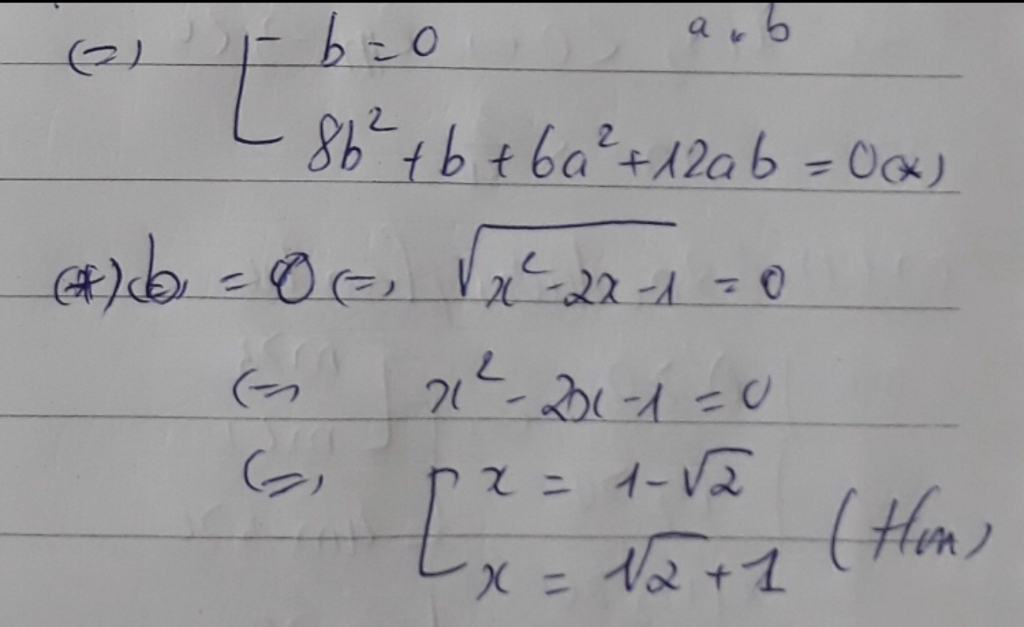 (=) [ b = 0 a, b
8b² + b + 6a² + 12ab = 0 (*)
(*) b = 0 (=) √(x² - 2x - 1) = 0
(=) x² - 2x - 1 = 0
(=) [ x = 1 - √2
x = √2 + 1 (tm)